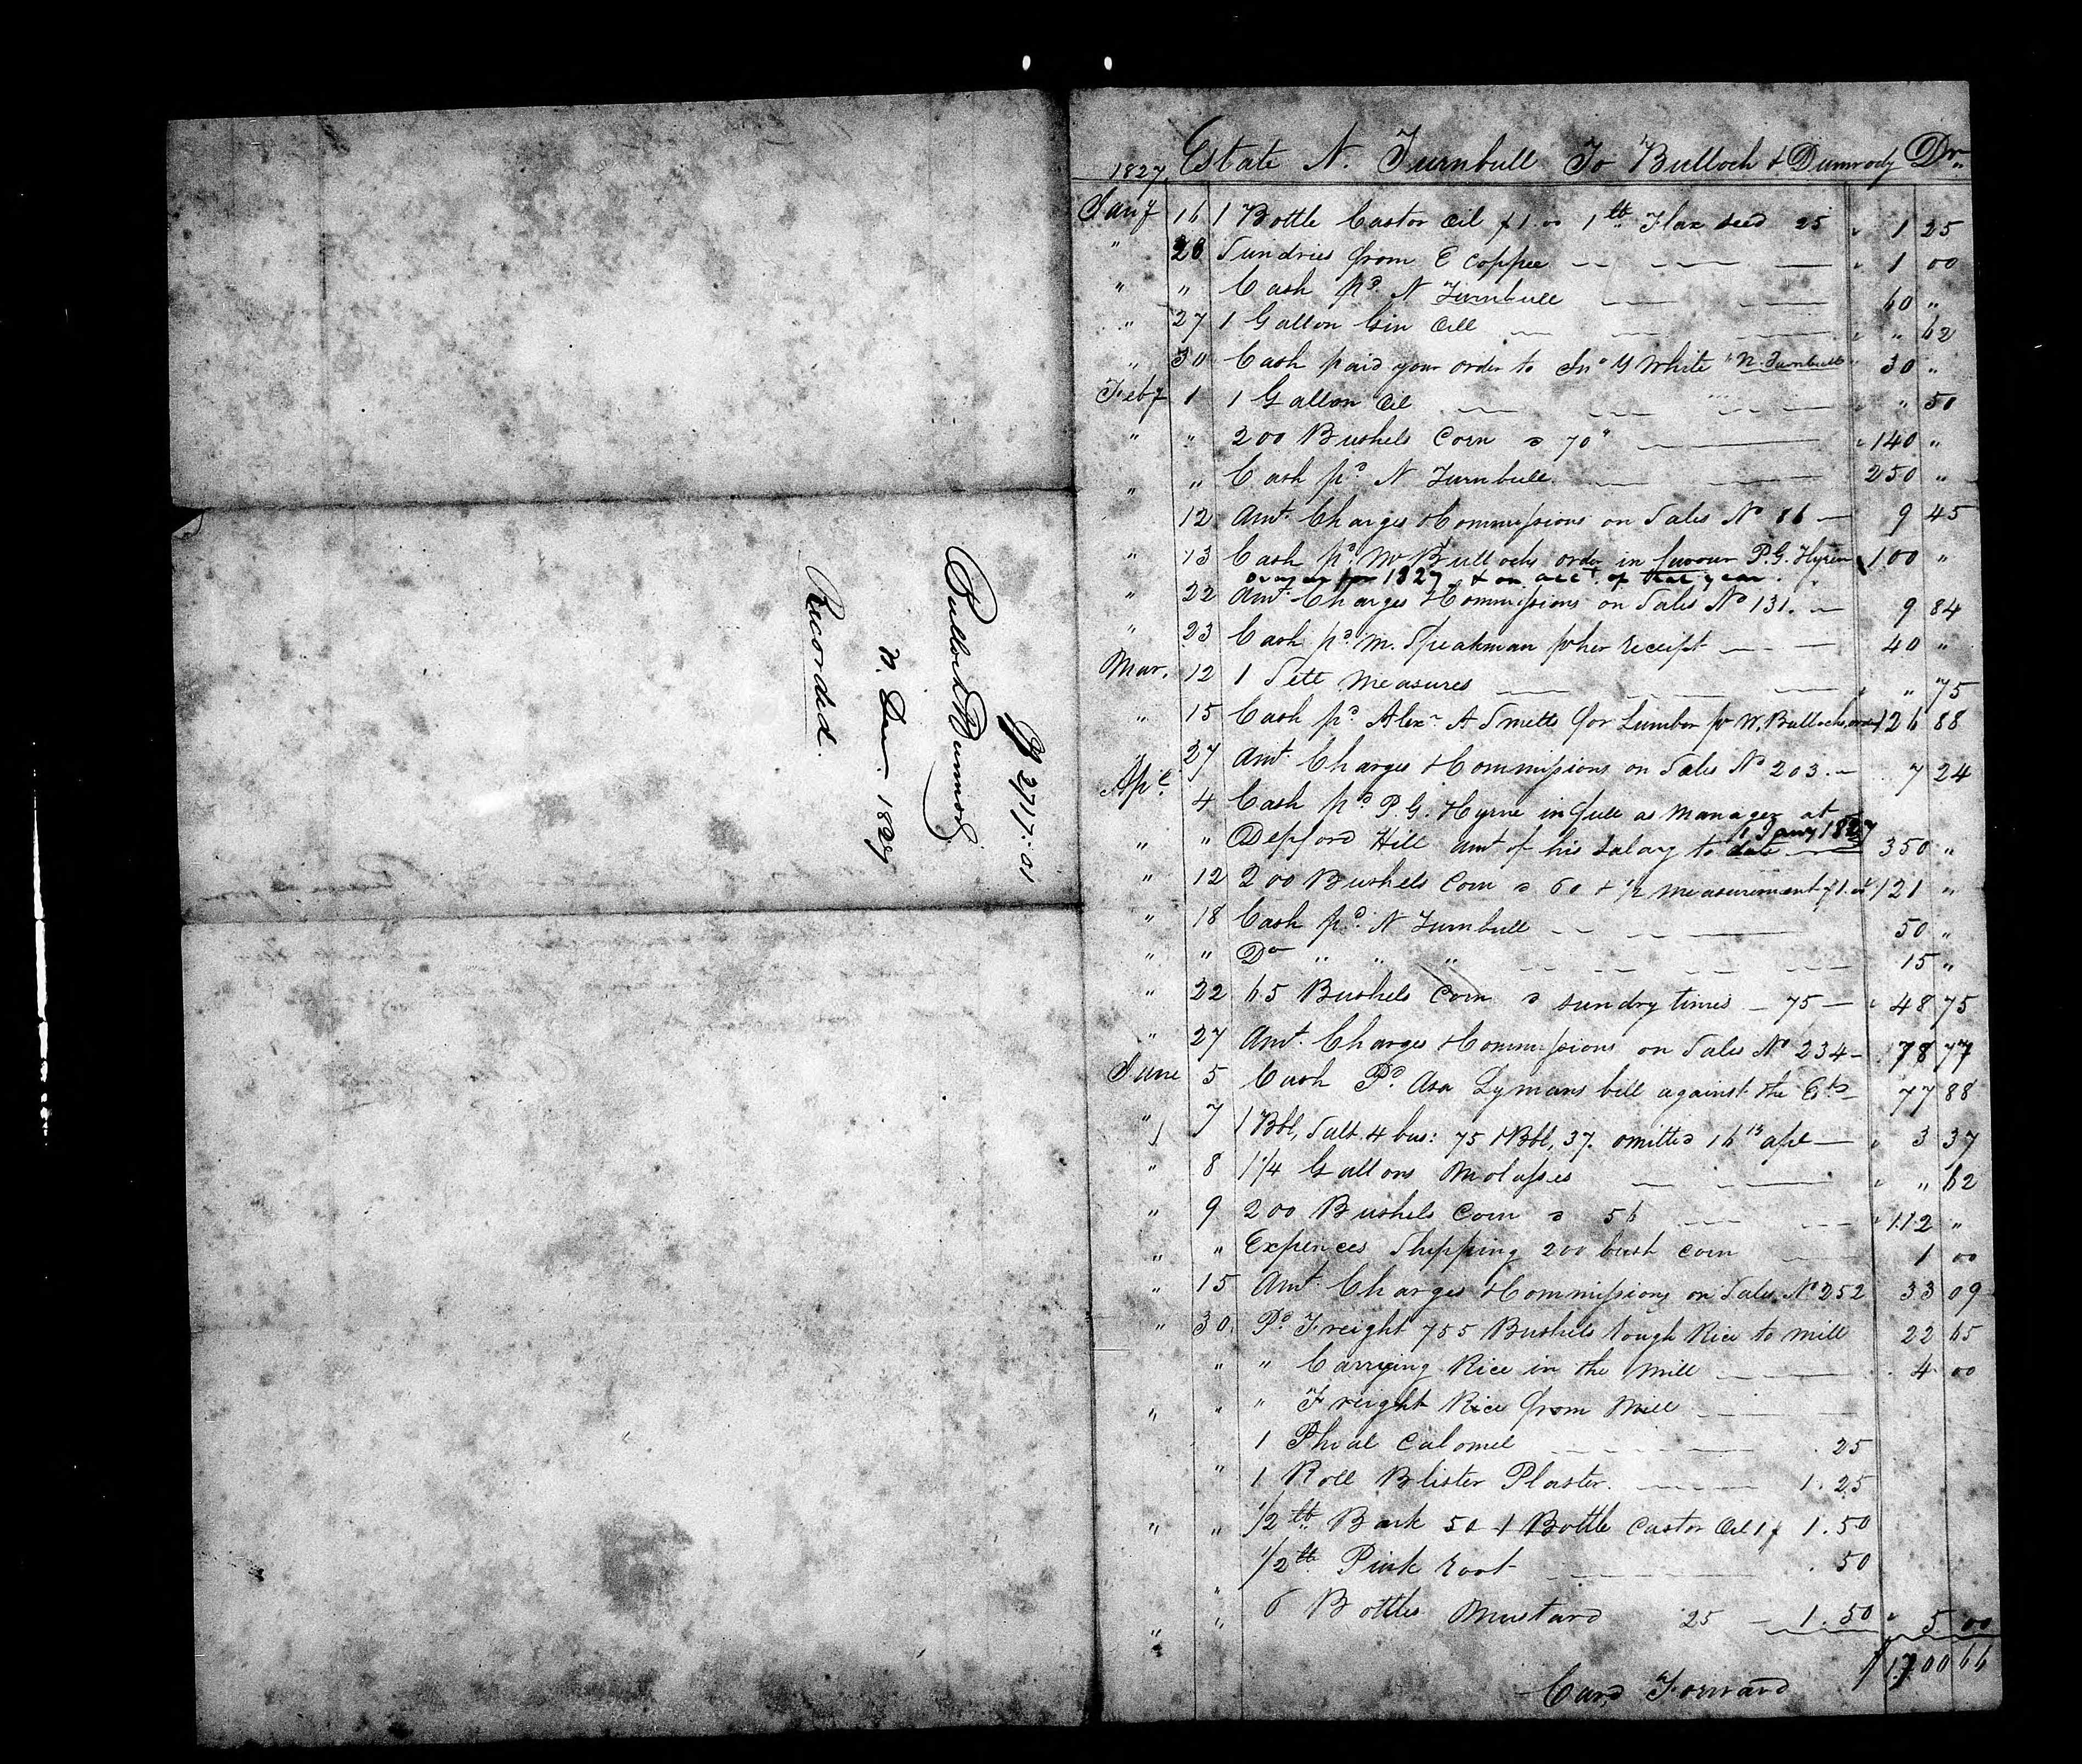 $2717.01
Bulloch & Dunwody
N. Decr. 1827
Recorded.
1827 Estate N. Turnbull To Bulloch & Dunwody Dr.
Jany 16 1 Bottle Castor Oil $1.00 1 lb Flax seed 25 " 1 25
" 20 Sundries from E Coppee " 1 00
" " Cash pd. N Turnbull 60 "
" 27 1 Gallon Gin Oill " " 62
" 30 Cash paid your order to Jno G White " N. Turnbull " 30 "
Feby 1 1 Gallon Oil " " 50
" " 200 Bushels Corn @ 70 " 140 "
" " Cash pd. N Turnbull 250 "
12 Amt. Charges & Commissions on Sales No 86 9 45
" 13 Cash pd. W Bullochs order in favour P.G. Hyrne 100 "
for 1827 & on acct of that year.
" 22 Amt. Charges & Commissions on Sales No 131. 9 84
" 23 Cash pd. M. Speakman pr her receipt 40 "
Mar. 12 1 Sett Measures " " 75
" 15 Cash pd. Alexr A Smetts for Lumber pr W. Bullochs order 126 88
" 27 Amt. Charges & Commissions on Sales No 203. 7 24
Apl. 4 Cash pd P. G. Hyrne in full as Manager at
1 Jany 1827
" " Depford Hill amt of his Salary to date 350 "
" 12 200 Bushels Corn @ 60 & 1/2 measurement $1.00 121 "
" 18 Cash pd. N Turnbull 50 "
" " Do " " " 15 "
" 22 65 Bushels Corn @ sundry times 75 " 48 75
" 27 Amt. Charges & Commissions on Sales No 234 78 77
June 5 Cash Pd. Asa Lymans bill against the Este 77 88
" 7 1 Bbl, Salt. 4 bus: 75 1 Bbl, 37. omitted 16th apl " 3 37
" 8 1 1/4 Gallons Molasses " " 62
" 9 200 Bushels Corn @ 56 " 112 "
" " Expences Shipping 200 bush corn 1 00
" 15 Amt. Charges & Commissions on Sales No 252 33 09
" 30 Pd. Freight 755 Bushels rough Rice to mill 22 65
" " Carrying Rice in the Mill 4 00
" " " Freight Rice from Mill
1 Phial Calomel 25
" 1 Roll Blister Plaster. 1.25
" " 1/2 lb Bark 50 1 Bottle Castor Oil 1$ 1.50
1/2 lb Pink root 50
" " 6 Bottles Mustard 25 1.50 " 5 00
Card Forward $1700 66